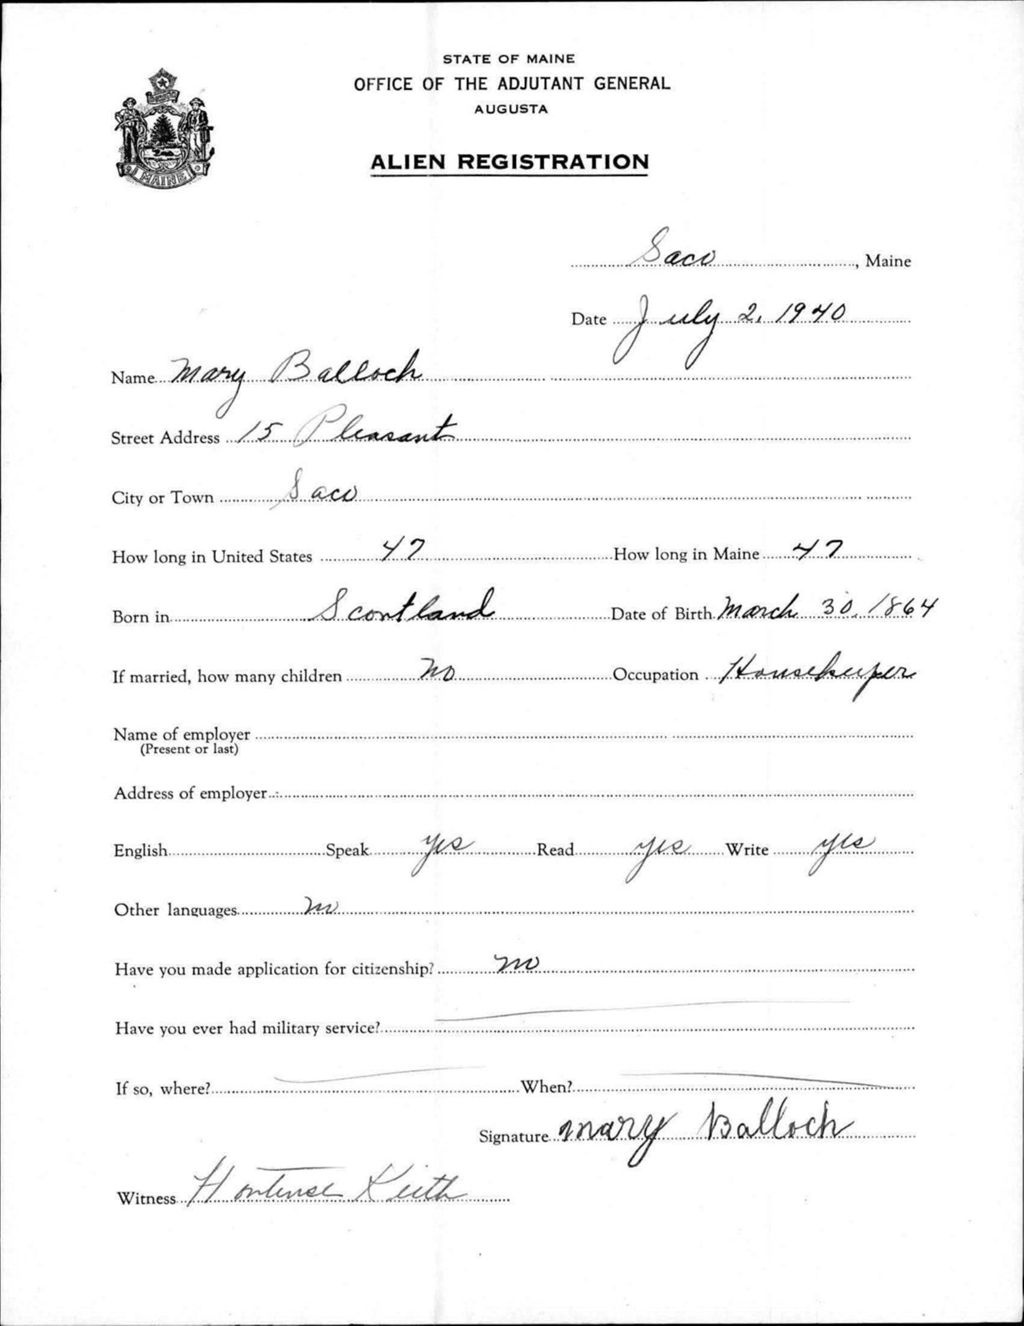 STATE OF MAINE
OFFICE OF THE ADJUTANT GENERAL
AUGUSTA
ALIEN REGISTRATION
MAINE
Saco, Maine
Date July 2, 1940
Name Mary Balloch
Street Address 15 Pleasant
City or Town Saco
How long in United States 47 How long in Maine 47
Born in Scontland Date of Birth March 30, 1864
If married, how many children No Occupation Housekeeper
Name of employer
(Present or last)
Address of employer
English Speak yes Read yes Write yes
Other languages no
Have you made application for citizenship? no
Have you ever had military service?
If so, where? When?
Signature Mary Balloch
Witness Hortense Keith